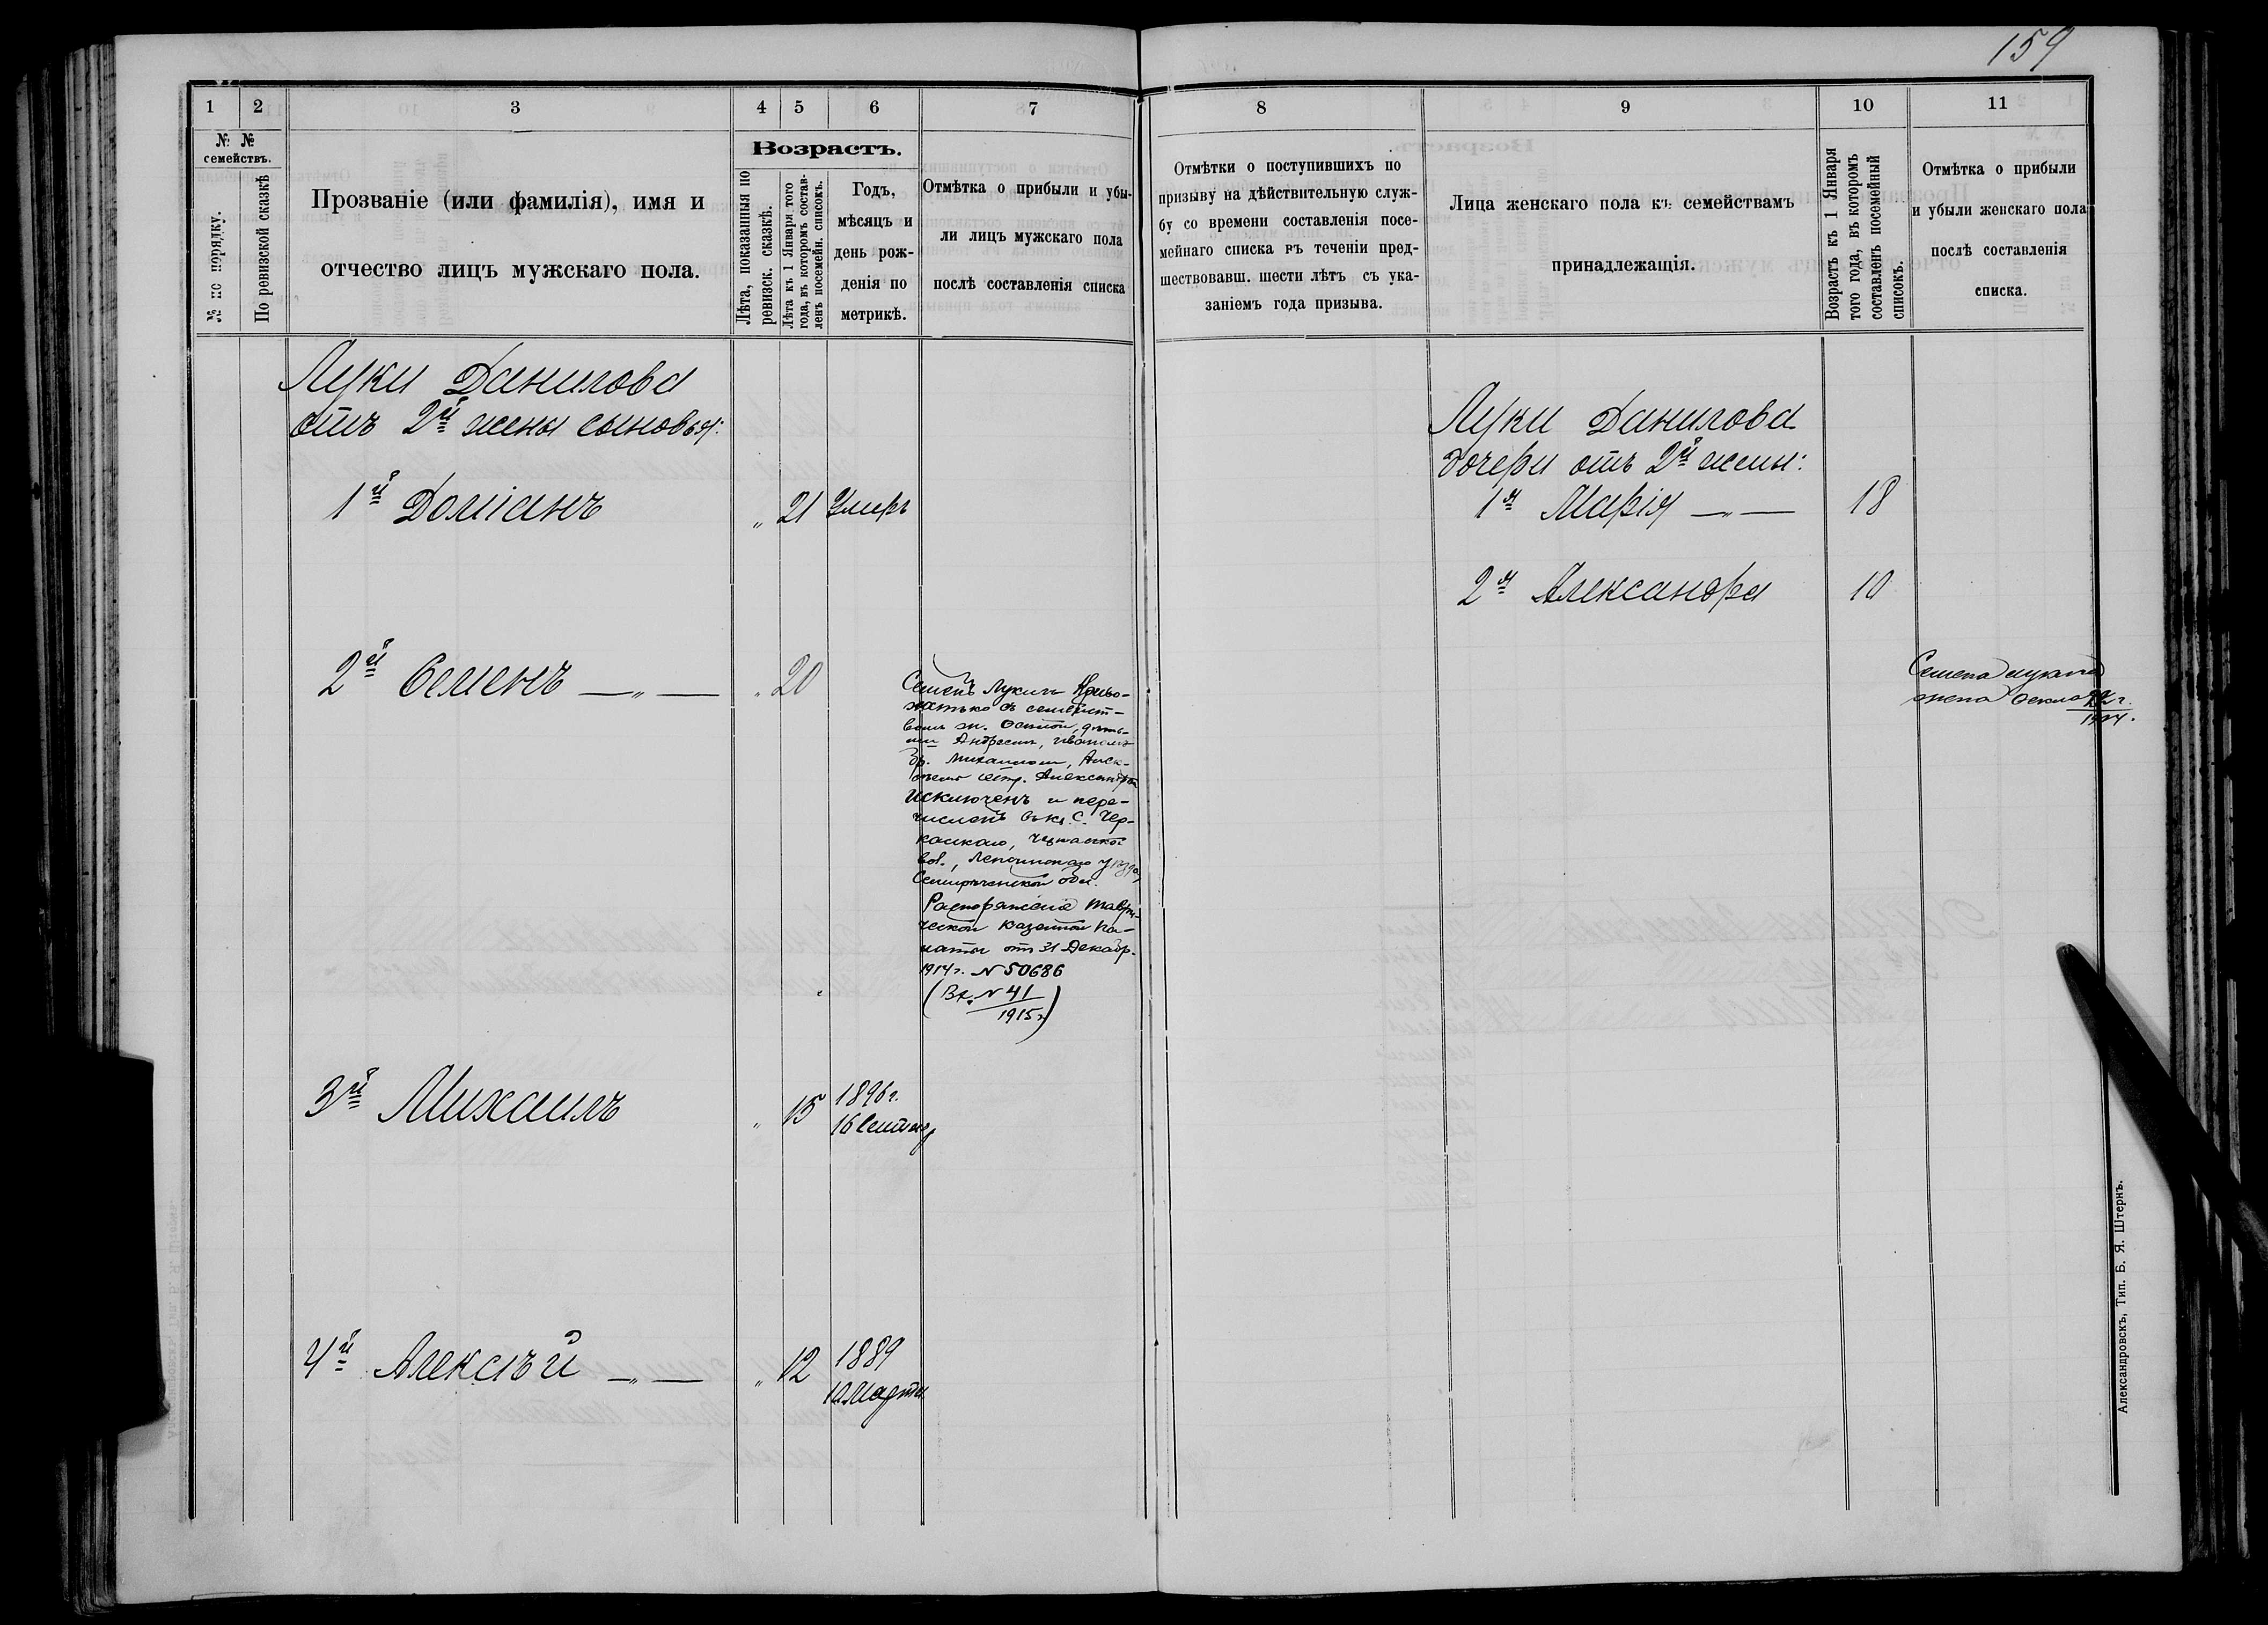 159
1 2 3 4 5 6 7
№ № семействъ.
№ по порядку.
По ревизской сказкѣ
Прозваніе (или фамилія), имя и
отчество лицъ мужскаго пола.
Возрастъ.
Лѣта, показанныя по
ревизск. сказкѣ.
Лѣта къ 1 Января того
года, въ которомъ состав-
ленъ посемейн. списокъ.
Годъ,
мѣсяцъ и
день рож-
денія по
метрикѣ.
Отмѣтка о прибыли и убы-
ли лицъ мужскаго пола
послѣ составленія списка
Луки Данилова
отъ 2й жены сыновья:
1й Доміанъ „ 21 Умеръ
2й Семенъ —„— „ 20
Семенъ Лукичъ
съ семейст-
вомъ ж.
Андреемъ, Иваномъ
бр. Михаиломъ, Алек-
сеемъ сестр. Александрой
исключенъ и пере-
численъ въ кр. с. Чер-
касское,
вол., Лепсинскаго уѣзда,
Семиреченской обл.
Распоряженіе Таври-
ческой Казенной Па-
латы отъ 31 Декабр.
1914 г. N 50686
(Вх. N 41
1915 г)
3й Михаилъ „ 15 1896 г.
16 Сентябр
4й Алексѣй —„— „ 12 1889
10 Марта
8 9 10 11
Отмѣтки о поступившихъ по
призыву на дѣйствительную служ-
бу со времени составленія посе-
мейнаго списка въ теченіи пред-
шествовавш. шести лѣтъ съ ука-
заніемъ года призыва.
Лица женскаго пола къ семействамъ
принадлежащія.
Возрастъ къ 1 Января
того года, въ которомъ
составленъ посемейный
списокъ.
Отмѣтка о прибыли
и убыли женскаго пола
послѣ составленія
списка.
Луки Данилова
дочери отъ 2й жены:
1я Марія —„— 18
2я Александра 10
Семена Лукича
жена
Александровскъ, Тип. Б. Я. Штернъ.